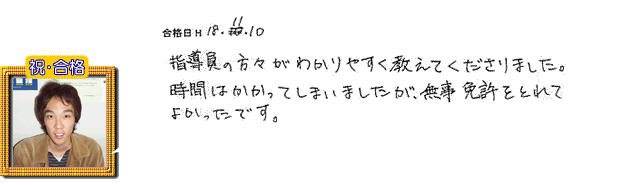 合格日 H 18.11.10
祝・合格
指導員の方々がわかりやすく教えてくださりました。
時間はかかってしまいましたが、無事免許をとれて
よかったです。